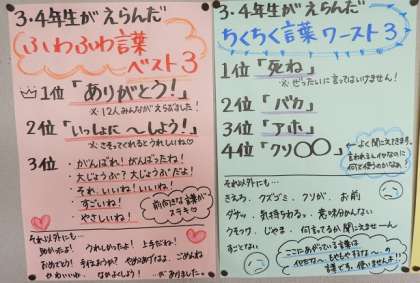 3・4年生が えらんだ
ふわふわ言葉
ベスト3
1位「ありがとう!」
※12人みんながえらびました!
2位「いっしょに 〜しよう!」
※さそってくれるとうれしいね♡
3位
・がんばれ! がんばったね!
・大じょうぶ? 大じょうぶだよ!
・それ、いいね! いいね!
・すごいね!
・やさしいね!
前向きな言葉が
ステキ♡
それ以外にも…
助かったよ! うれしかったよ! 上手だね!
おめでとう!
ごめんね
かわいいね なかよくしよう! …がありました。
3・4年生が えらんだ
ちくちく言葉 ワースト3
1位「死ね」
※ぜったいに言ってはいけません!
2位「バカ」
3位「アホ」
4位「クソ〇〇」
←よく聞こえてきます。
言われるとイヤなのに
何で使うのかなぁ
それ以外にも…
きえろ、クズゴミ、クソが、お前
ダサッ、気持ちわるっ、意味わかんない
ウザッ、じゃま、何言ってるか聞こえませーん
すごとない
ここにあがっている言葉は
言葉です。使いませんよ!!